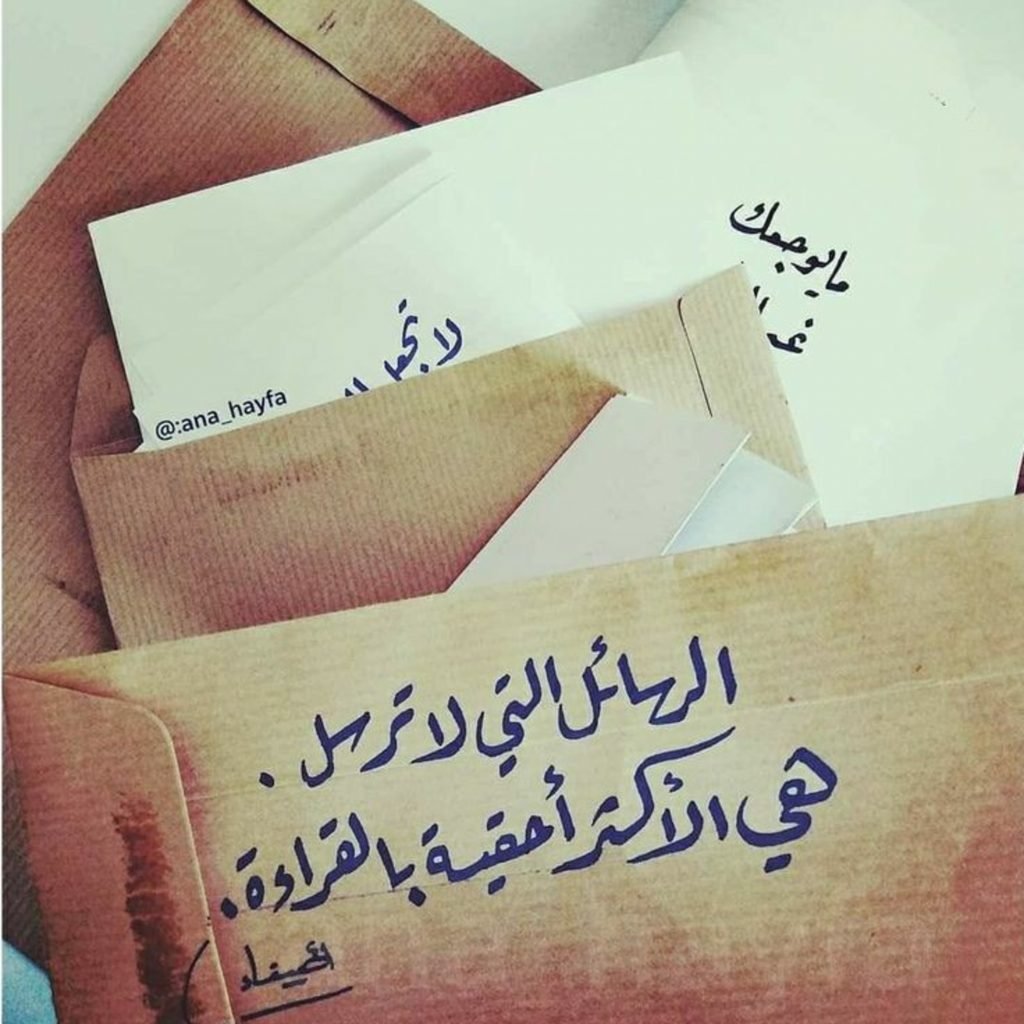 مايوجعك
لا تجعل
@:ana_hayfa
الرسائل التي لا ترسل .
هي الأكثر أحقية بالقراءة .